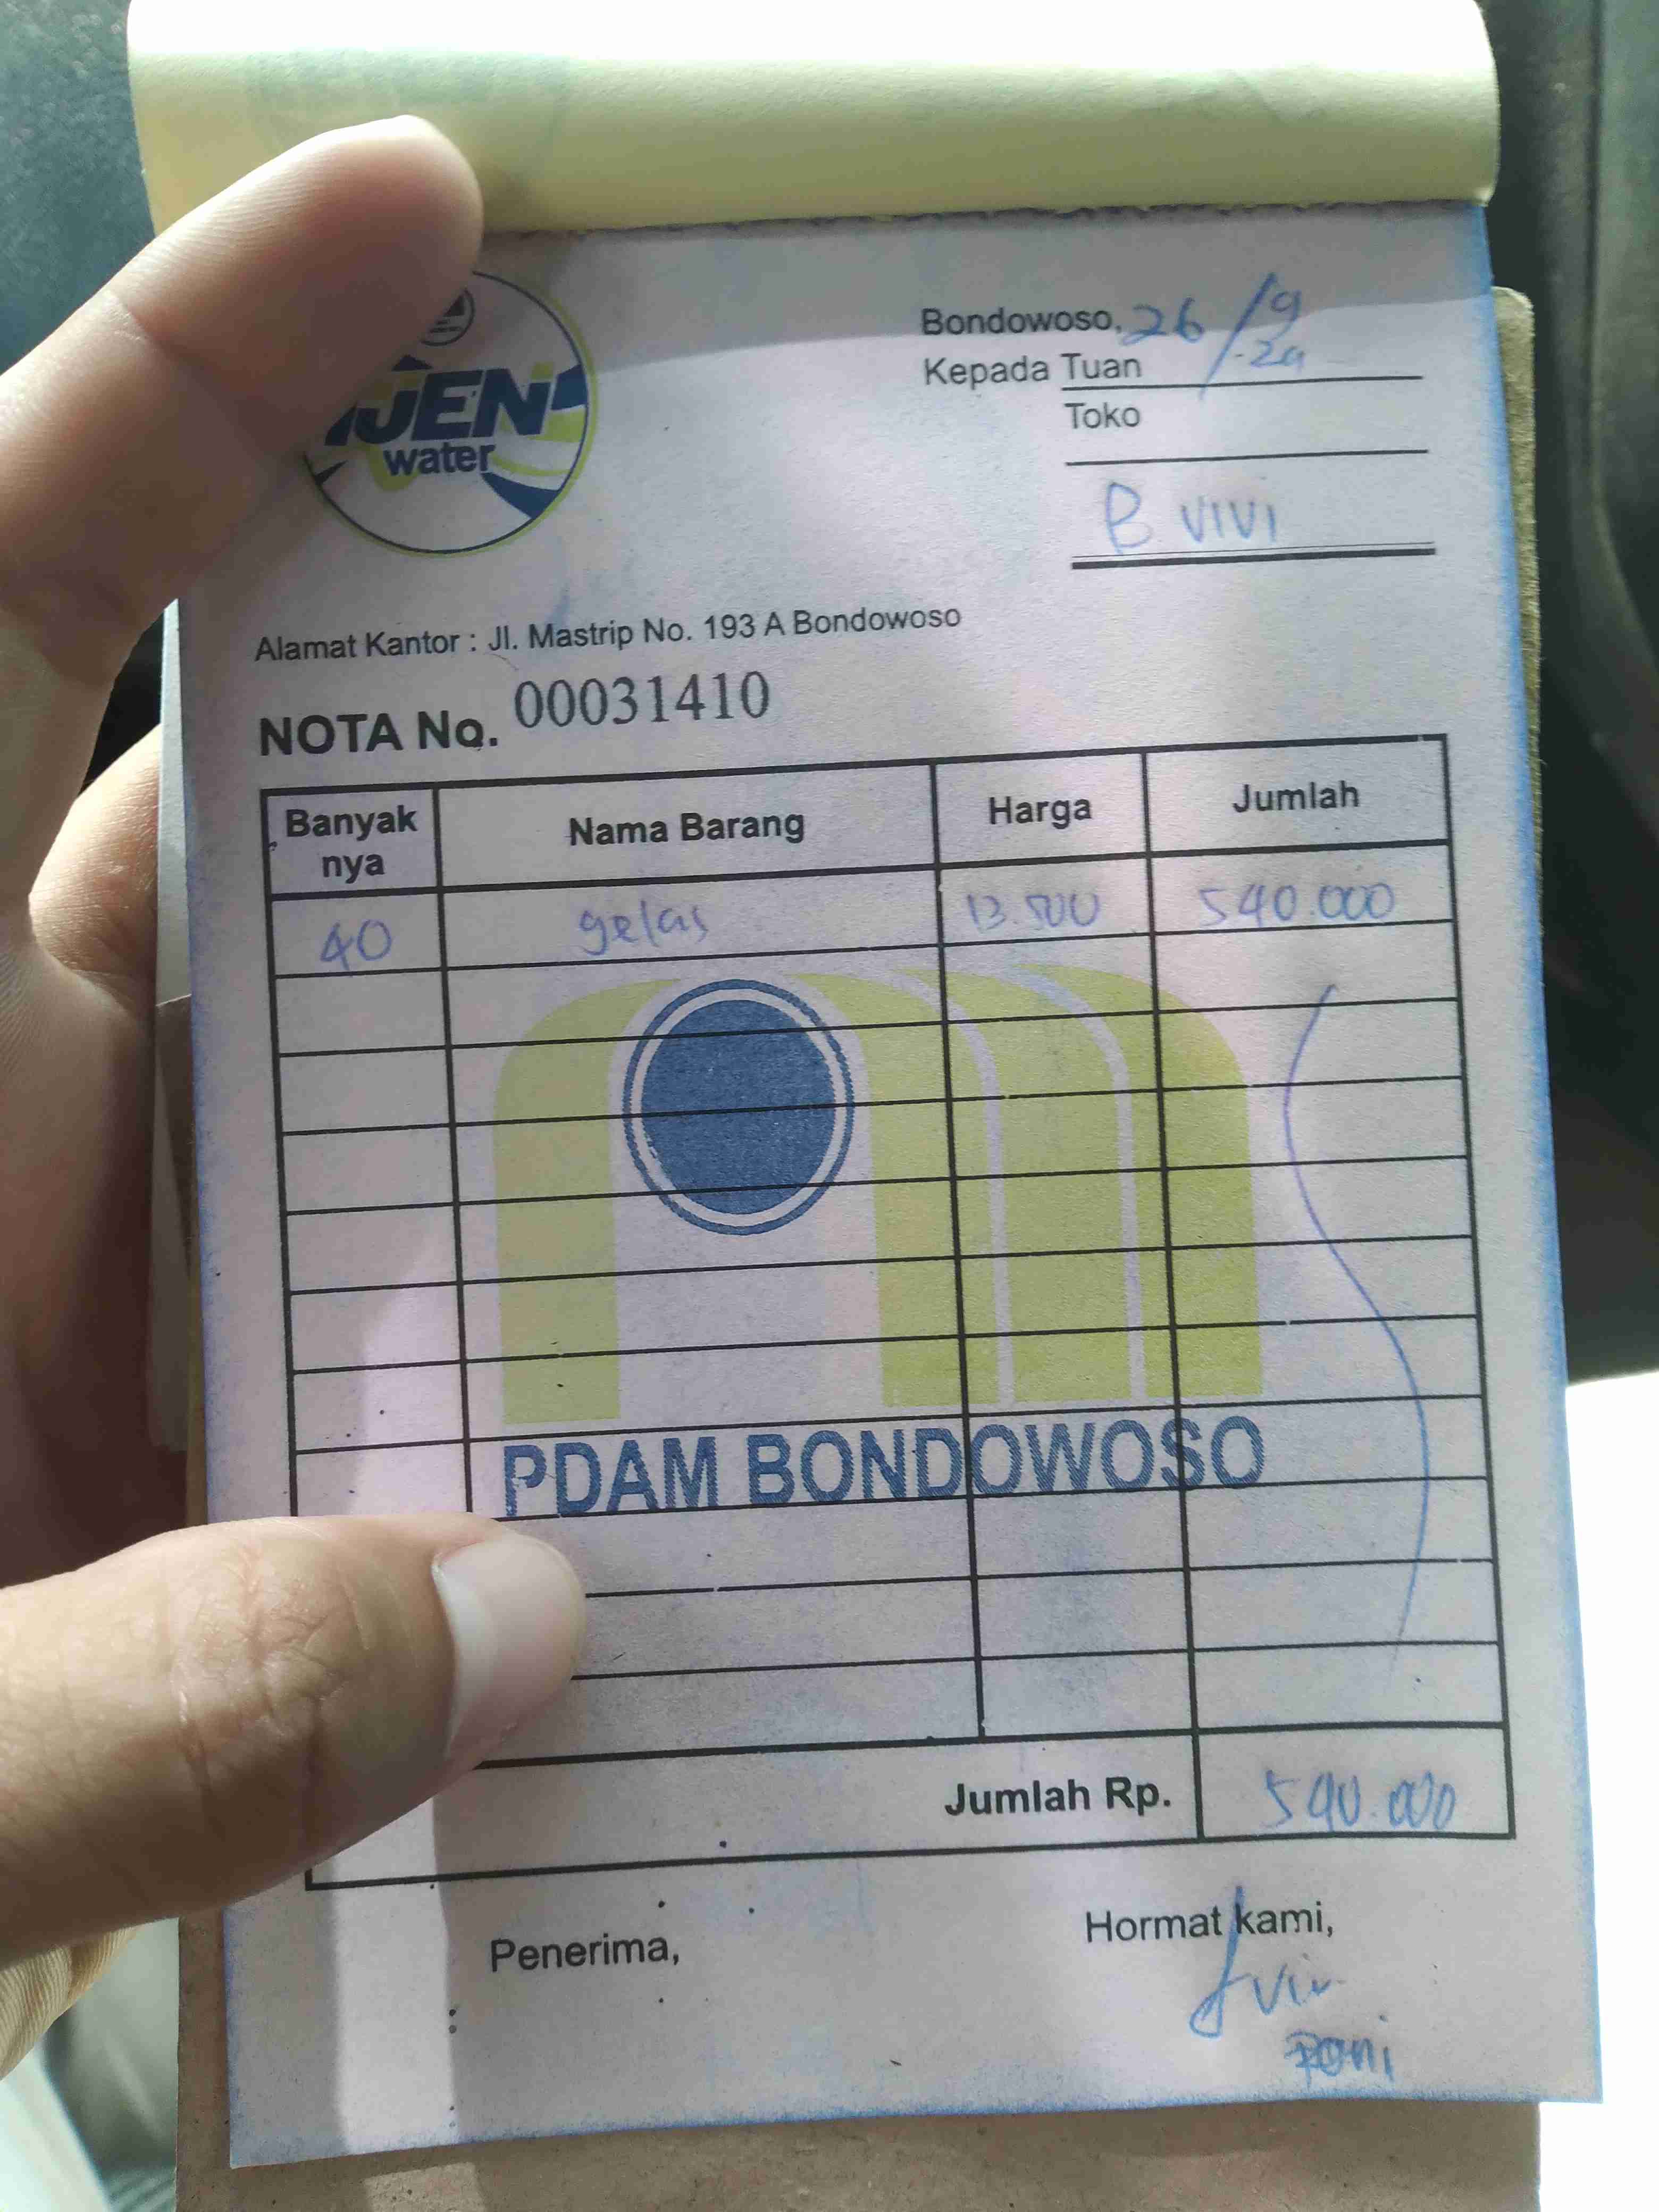 IJEN
water
Bondowoso, 26/9
-24
Kepada Tuan
Toko
B VIVI
Alamat Kantor : Jl. Mastrip No. 193 A Bondowoso
NOTA No. 00031410
Banyak nya Nama Barang Harga Jumlah
40 gelas 13.500 540.000
PDAM BONDOWOSO
Jumlah Rp. 540.000
Penerima, Hormat kami,